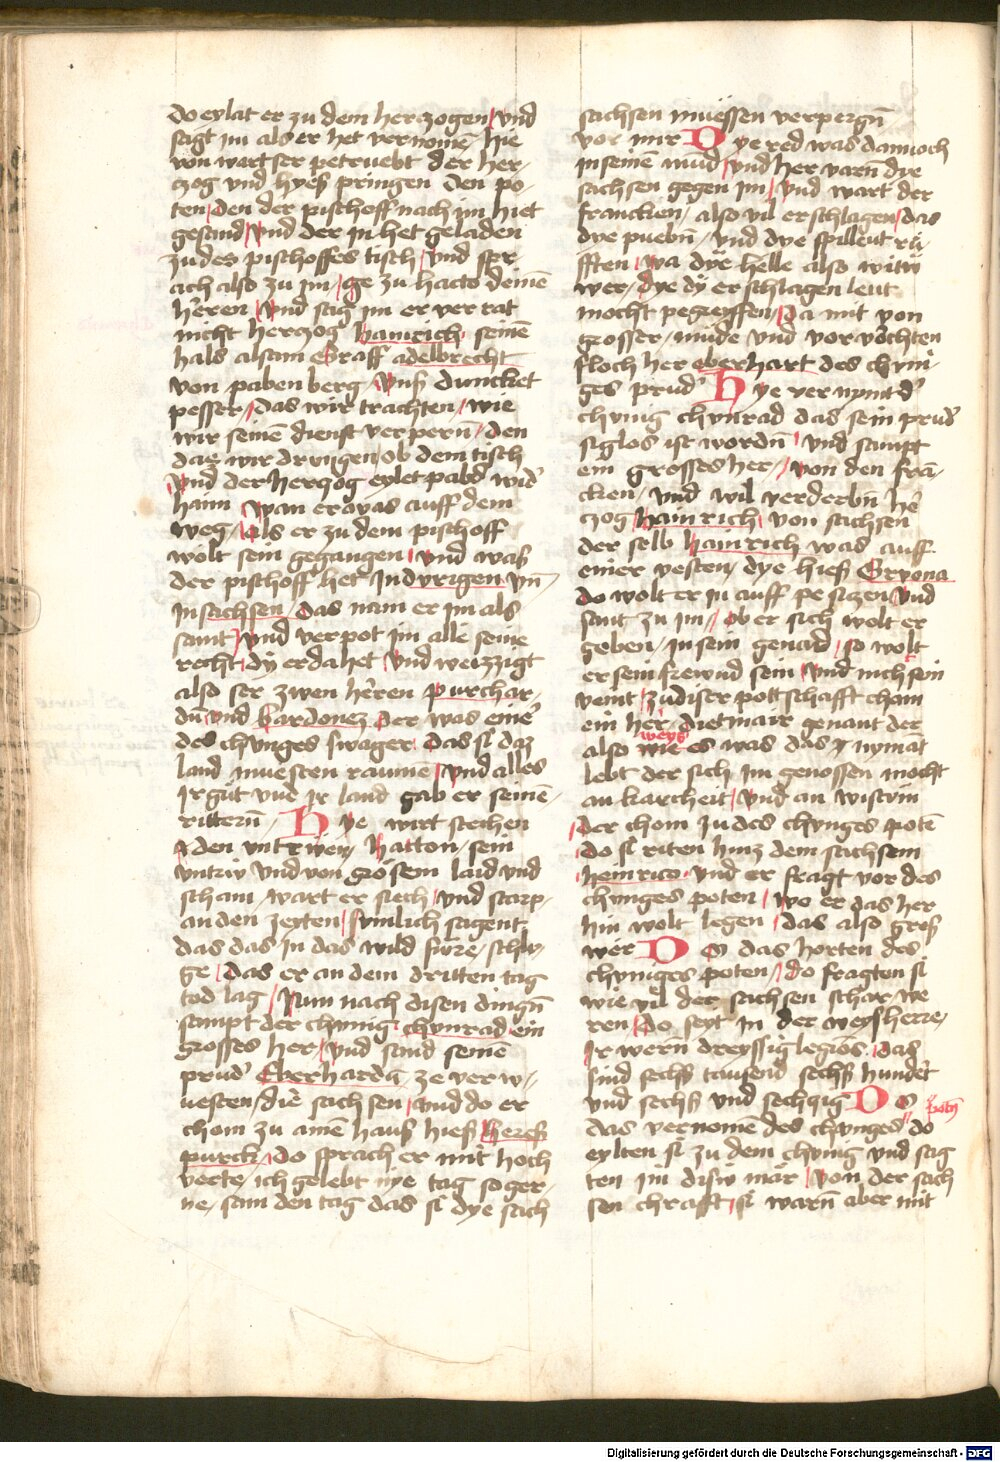 Do eylat er zu dem herczogen / vnd
sagt im als er het vernomē / hie
von wart ser petruebt der her-
czog vnd hyes pringen den po-
ten / den der pischoff nach im het
gesand / vnd der in het geladen
zu des pischoffes tisch / vnd spr-
ach also zu im / ge zu hacto deinē
herren / vnd sag im er ver rat
nicht herczog hainrich seinē
hals alsam Graff adelbrecht
von paben berg / vns duncket
pesser / das wir trachten / wie
wir seinē dienst verpern / den
daz wir dringen ob dem tisch
vnd der herczog eylet pald wid'
haim / wan er was auff dem
weg / als er zu dem pischoff
wolt sein gegangen / vnd was
der pischoff het In durigen vn̄
in sachsen / das nam er im als
samt / vnd verpot im alle seine
recht / dy er da het / vnd weizzigt
also ser zwen herren purchar-
dū vnd bardonez der was eine'
des chuniges swager / das si daz
land muesten raumē / vnd alles
ir gut vnd ir land gab er seinē
rittern / Hye wirt stechen
den vntriwen hatton / sein
vntriw vnd von grösem laid vnd
scham / wart er siech / vnd starp
an den zeyten / sumlich sagent
das das in das wild fiwre / schlu-
ge / das er an dem dritten tag
tod lag / Num nach disen dingn̄
sampt der chunig chunrad ein
grosses her / vnd sand seinē
prud' Eberhardū ze verw-
uesten / die sachsen / vnd do er
chom zu ainē haus hies heres
purck / do sprach er mit hoch
verte / ich gelebt nye tag so ger-
ne / sam den tag das si dye sach
sachsen muessen verpergn̄
vor mir Dye red was dannoch
in seinem mund / vnd her varn̄ dye
sachsen gegen im / vnd wart der
francken / also vil erschlagen / das
dye puebn̄ / vnd dye spilleut rü-
fften / wa dye helle also witw
wer / dye dy erschlagen leut
mocht pegreyffen / Da mit von
grosser / müde vnd vorvöchten
floch her eberhart des chuni-
ges prud' Hye vernymt d'
chunig chunrad das sein prud'
siglos ist wordn̄ / vnd sampt
ein grosses her / von den frā-
cken / vnd wil verderbn̄ he'
czog hainrich von sachsen
der selb hainrich was auff
einer vesten / dye hies Gryona
do wolt er in auff pe siczen / vnd
sant zu im / ob er sich wolt er
geben / in sein genad / so wolt
er sein frewnd sein / vnd nich sein
veint / zu diser pottschafft cham
ein her / dietmair genant der
also weys wie es was das nymāt
lebt der sich im genossen mocht
an karcheit / vnd an wistvm
der chom zu des chunges potē
do si riten hinz dem sachsem
heinrico / vnd er fragt vor des
chunges poten / wo er das her
hin wolt legen / das also gros
wer Do das horten des
chuniges poten / do fragten si
wie vil der sachsen schar we
ren / do seyt in der weys herre /
Ir wern̄ dreyssig legiōs / das
sind sechs tausend sechs hundert
vnd sechs vnd sechzig Do
das vernomē des chunges potn̄ do
eylten si zu dem chunig vnd sag
ten im disw mär / von der sach
sen chrafft / si warn̄ aber mit
Digitalisierung gefördert durch die Deutsche Forschungsgemeinschaft - DFG